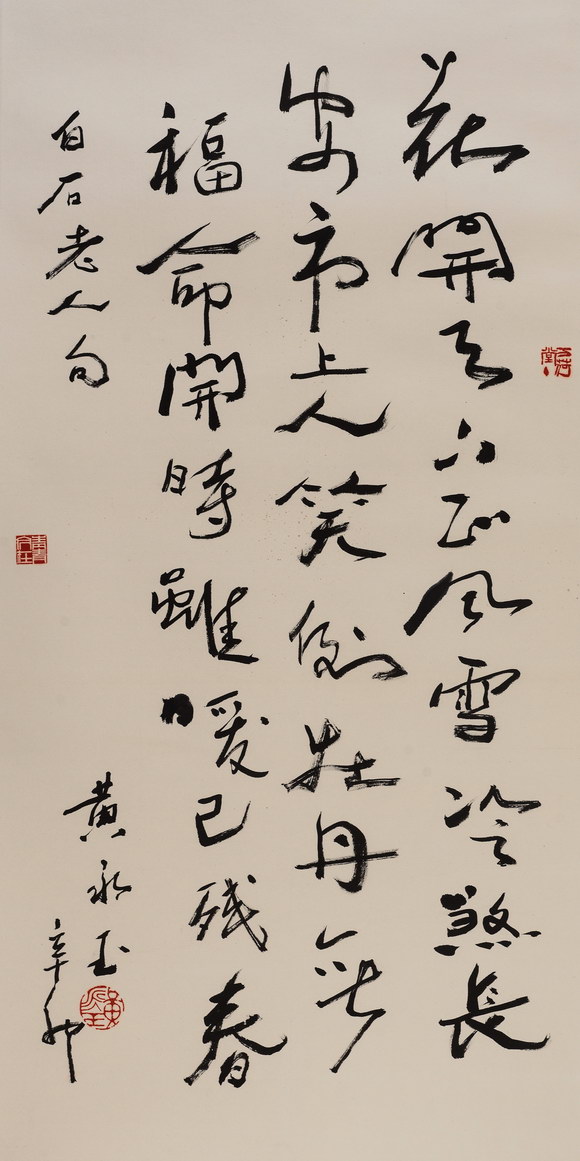 花開天下正風雪冷煞長
安市上人笑倒牡丹無
福命開時雖暖已残春
白石老人句
黄永玉
辛卯